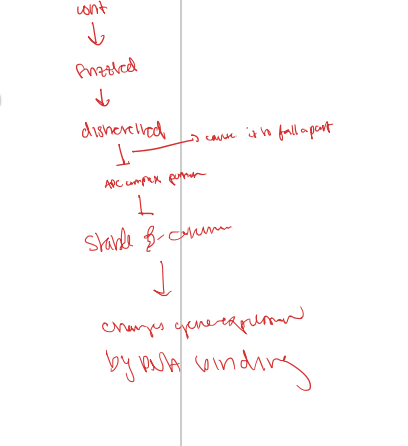 wnt
frizzled
dishevelled
cause it to fall apart
APC complex
Stable β-catenin
changes gene expression
by DNA binding